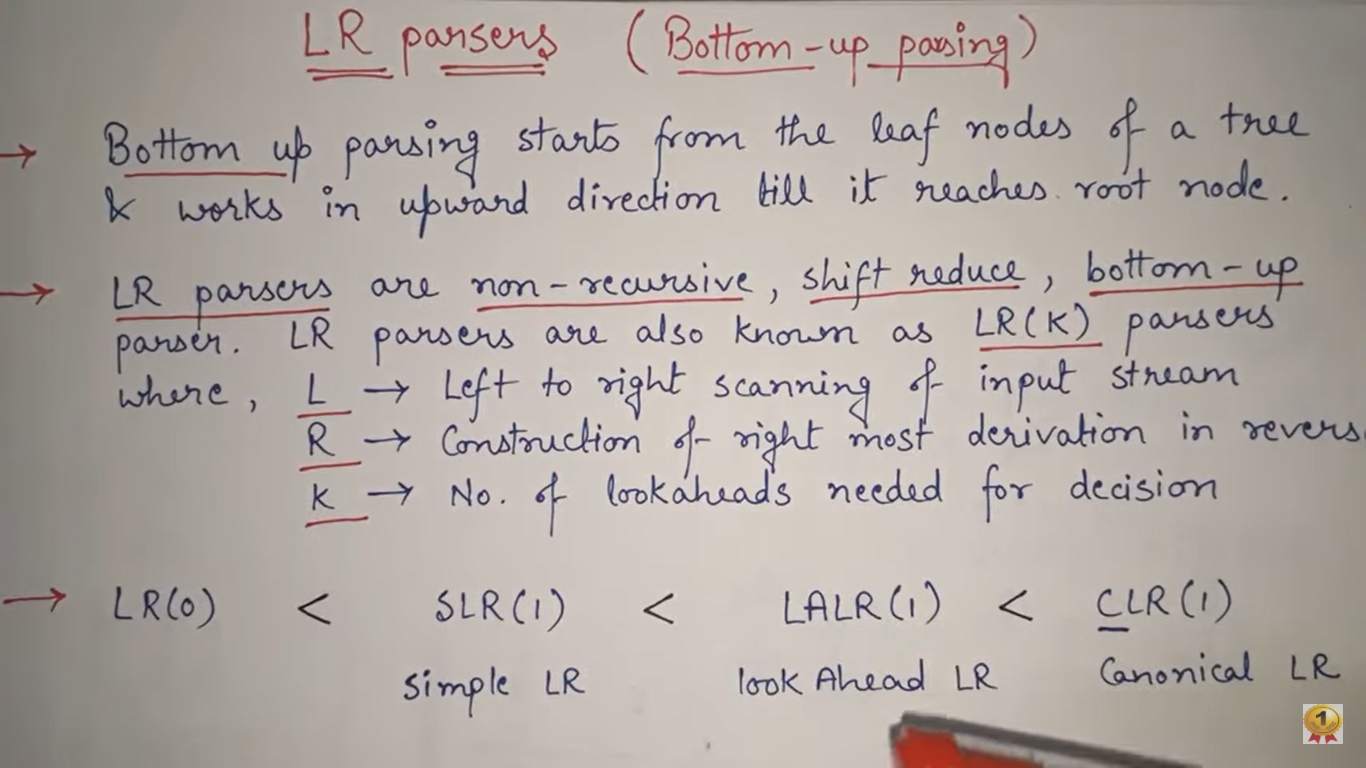 LR parsers (Bottom-up parsing)
→ Bottom up parsing starts from the leaf nodes of a tree
& works in upward direction till it reaches root node.
→ LR parsers are non-recursive, shift reduce, bottom-up
parser. LR parsers are also known as LR(K) parsers
where, L → Left to right scanning of input stream
R → Construction of right most derivation in revers
K → No. of lookaheads needed for decision
→ LR(0) < SLR(1) < LALR(1) < CLR(1)
Simple LR look Ahead LR Canonical LR
1